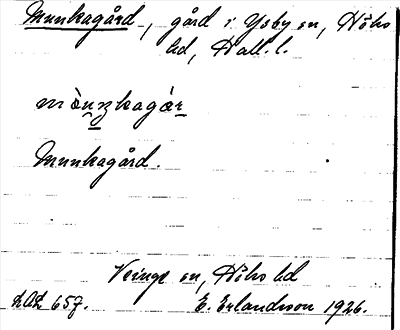 Munkagård, gård i Ysby sn, Höks
hd, Hall. l.
Munkagård.
Veinge sn, Höks hd
LAL 657. E. Erlandsson 1926.